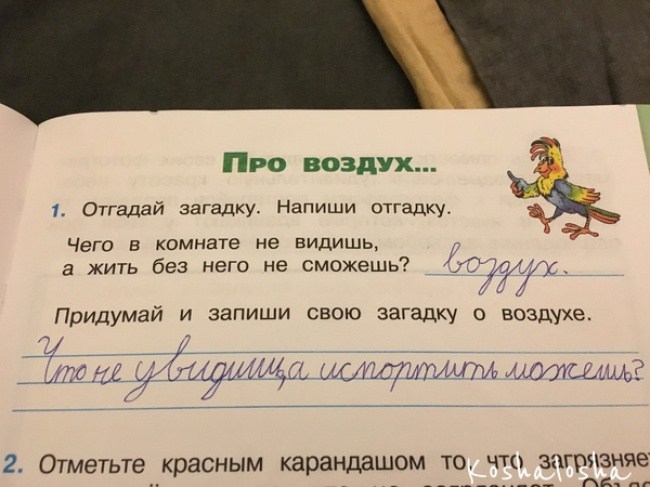 Про воздух...
1. Отгадай загадку. Напиши отгадку.
Чего в комнате не видишь,
а жить без него не сможешь? воздух.
Придумай и запиши свою загадку о воздухе.
Что не увидиш,а испортить можешь?
2. Отметьте красным карандашом то, что загрязняе
Koshalosha